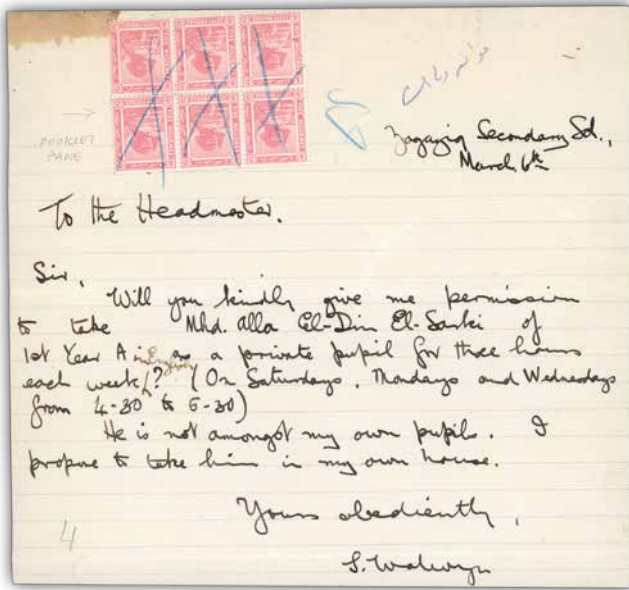 BOOKLET
PANE
Zagazig Secondary Sch.,
March 6th
To the Headmaster.
Sir,
Will you kindly give me permission
to take Mhd. Alla El-Din El-Sanki of
1st Year A in English as a private pupil for three hours
each week? (On Saturdays, Mondays and Wednesdays
from 4-30 to 5-30)
He is not amongst my own pupils. I
propose to take him in my own house.
Yours obediently,
S. Walwyn
4